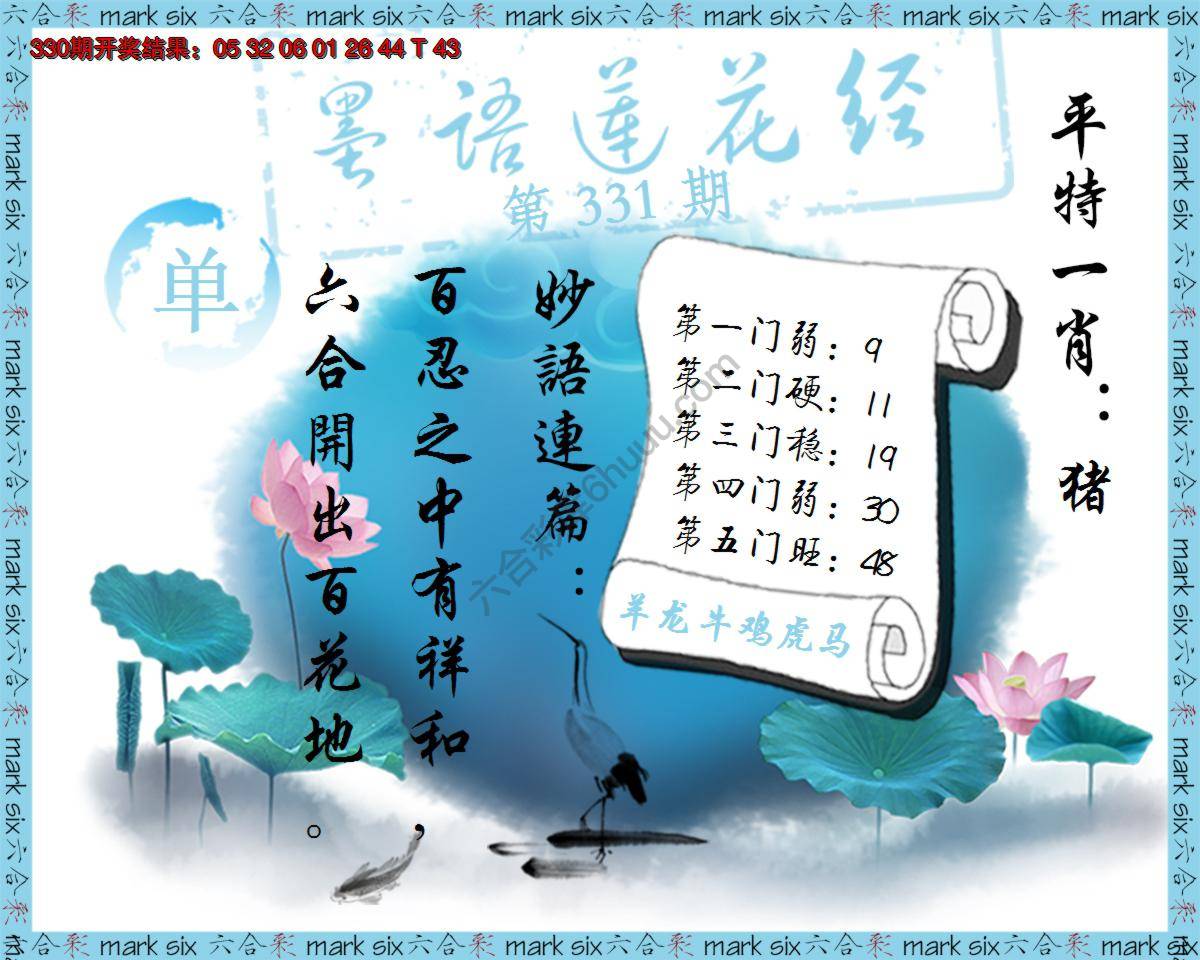 330期开奖结果：05 32 06 01 26 44 T 43
墨語莲花经
第 331 期
单
平特一肖：猪
妙語連篇：
百忍之中有祥和，
六合開出百花地。
第一门弱：9
第二门硬：11
第三门稳：19
第四门弱：30
第五门旺：48
羊龙牛鸡虎马
六合彩 mark six 六合彩 mark six 六合彩 mark six 六合彩 mark six 六合彩 mark six 六合彩 mark six